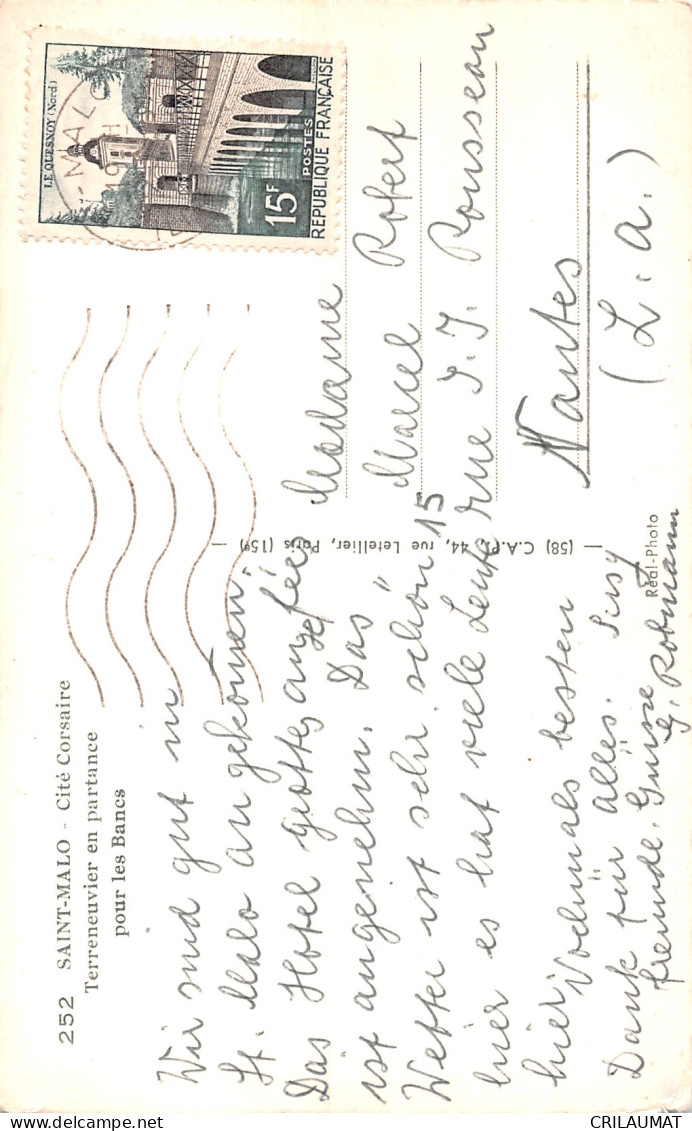 252 SAINT-MALO - Cité Corsaire
Terreneuvier en partance
pour les Bancs
Wir sind gut in
St. Malo angekommen.
Das Hotel grottes aux fées
ist angenehm. Das
Wetter ist sehr schön
hier es hat viele Leute
hier. Vochmals besten
Dank für alles. Susy
freunde. Grüsse
G. Rotmann
(58) C.A.P. 44, rue Letellier, Paris (15e)
LE QUESNOY (Nord)
POSTES
15F
REPUBLIQUE FRANÇAISE
-MALO
Madame
Marcel Robert
15 rue J.J. Rousseau
Nantes
(L.A.)
Réal-Photo
CRILAUMAT